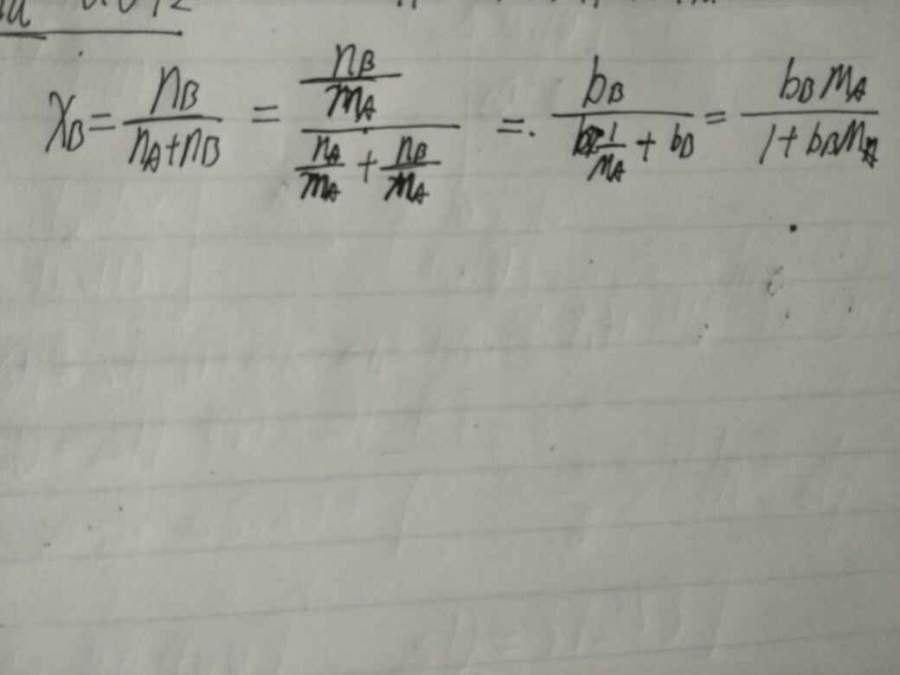 χ_B = n_B / (n_A + n_B) = (n_B / m_A) / (n_A / m_A + n_B / m_A) = b_B / (1 / M_A + b_B) = b_B M_A / (1 + b_B M_A)